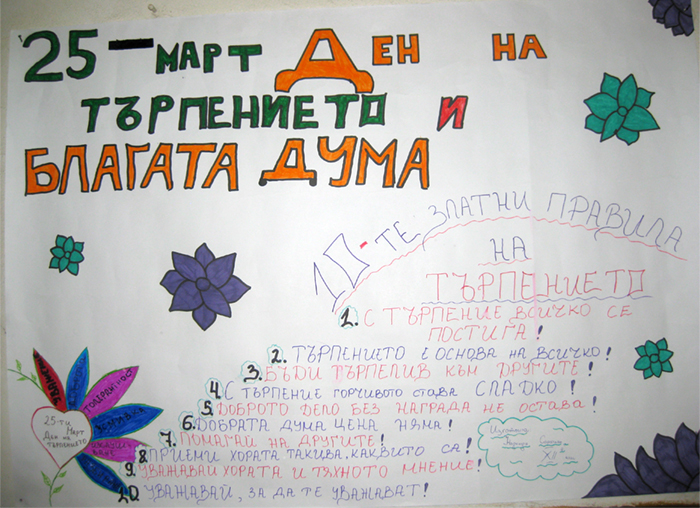 25 – МАРТ ДЕН НА
ТЪРПЕНИЕТО И
БЛАГАТА ДУМА
10-ТЕ ЗЛАТНИ ПРАВИЛА
НА
ТЪРПЕНИЕТО
1. С ТЪРПЕНИЕ ВСИЧКО СЕ
ПОСТИГА!
2. ТЪРПЕНИЕТО Е ОСНОВА НА ВСИЧКО!
3. БЪДИ ТЪРПЕЛИВ КЪМ ДРУГИТЕ!
4. С ТЪРПЕНИЕ ГОРЧИВОТО СТАВА СЛАДКО!
5. ДОБРОТО ДЕЛО БЕЗ НАГРАДА НЕ ОСТАВА!
6. ДОБРАТА ДУМА ЦЕНА НЯМА!
7. ПОМАГАЙ НА ДРУГИТЕ!
8. ПРИЕМИ ХОРАТА ТАКИВА, КАКВИТО СА!
9. УВАЖАВАЙ ХОРАТА И ТЯХНОТО МНЕНИЕ!
10. УВАЖАВАЙ, ЗА ДА ТЕ УВАЖАВАТ!
ТОЛЕРАНТНОСТ
25-ти
Март
Ден на
ТЪРПЕНИЕТО